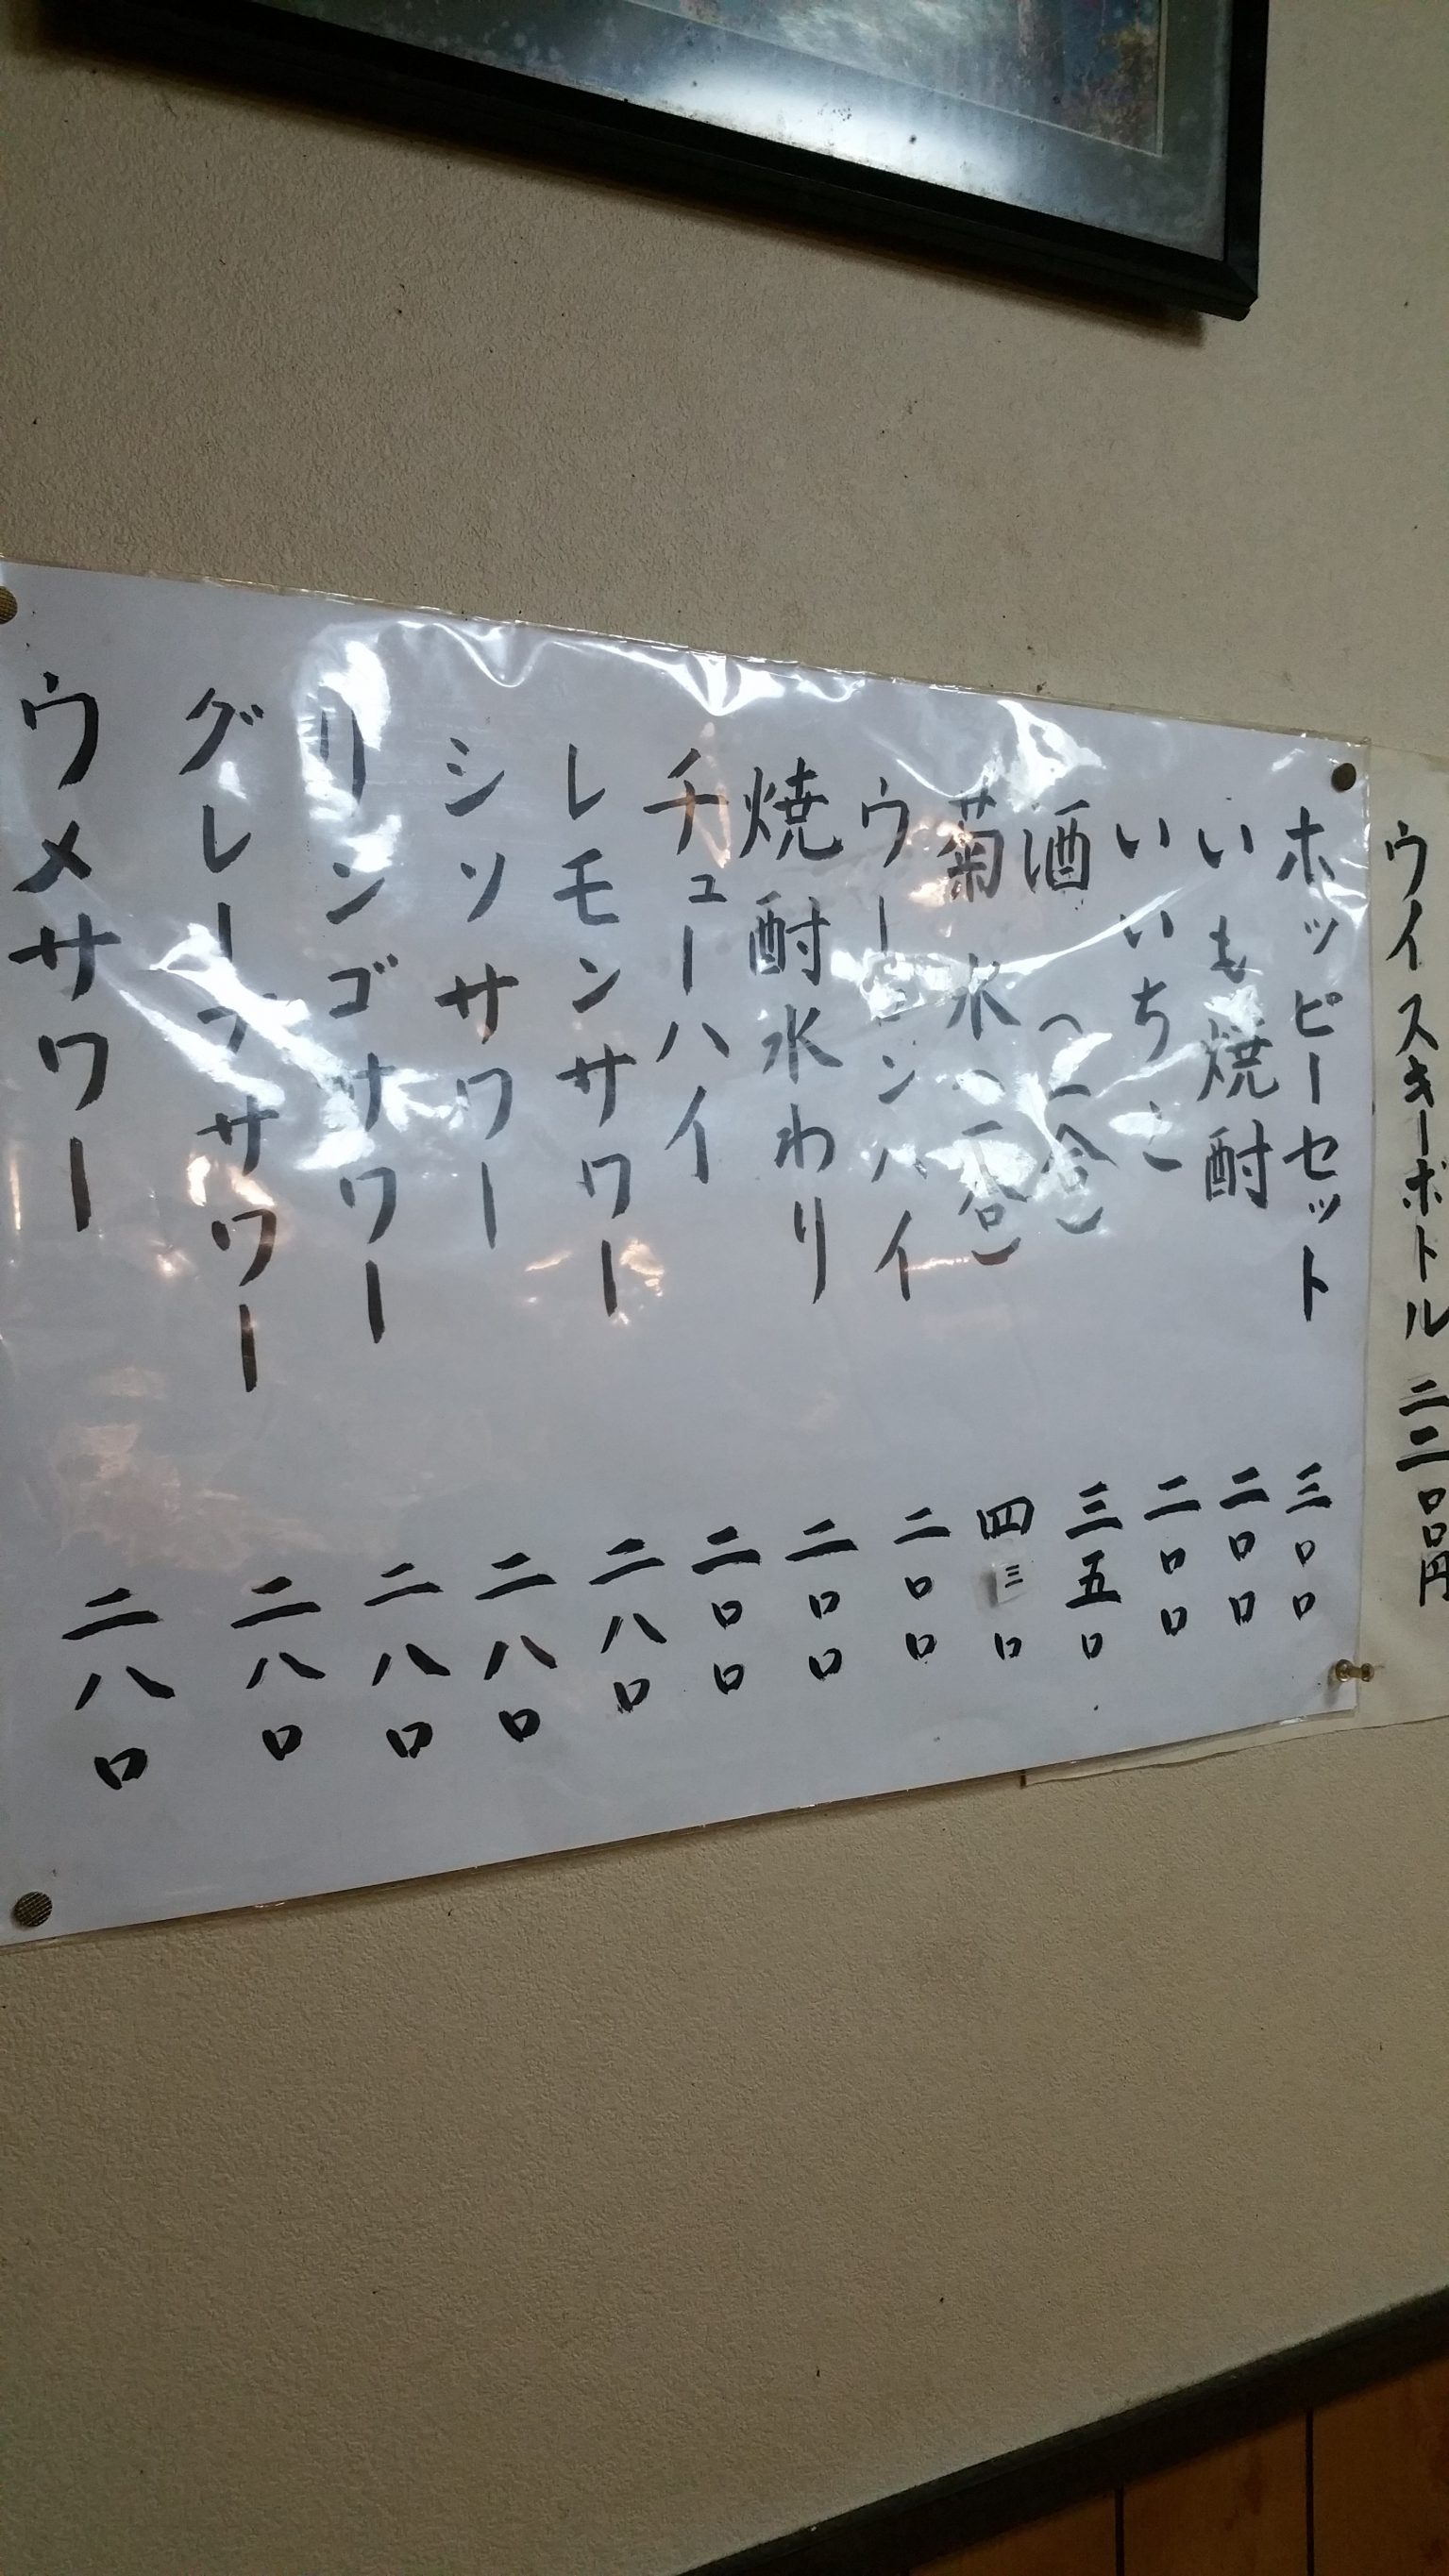 ウイスキーボトル 二二〇〇円
ホッピーセット 三〇〇
いも焼酎 二〇〇
いいちこ 二〇〇
酒(一合) 三五〇
菊水(一合) 四三〇
ウーロンハイ 二〇〇
焼酎水わり 二〇〇
チューハイ 二〇〇
レモンサワー 二八〇
シソサワー 二八〇
リンゴサワー 二八〇
グレープサワー 二八〇
ウメサワー 二八〇